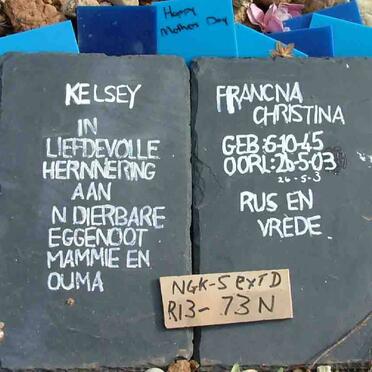 Happy
Mothers Day
KELSEY
IN
LIEFDEVOLLE
HERNNERING
AAN
N DIERBARE
EGGENOOT
MAMMIE EN
OUMA
FRANCNA
CHRISTINA
GEB:6-10-45
OORL:26-5-03
26-5-3
RUS EN
VREDE
NGK-5 EXTD
R13-73N